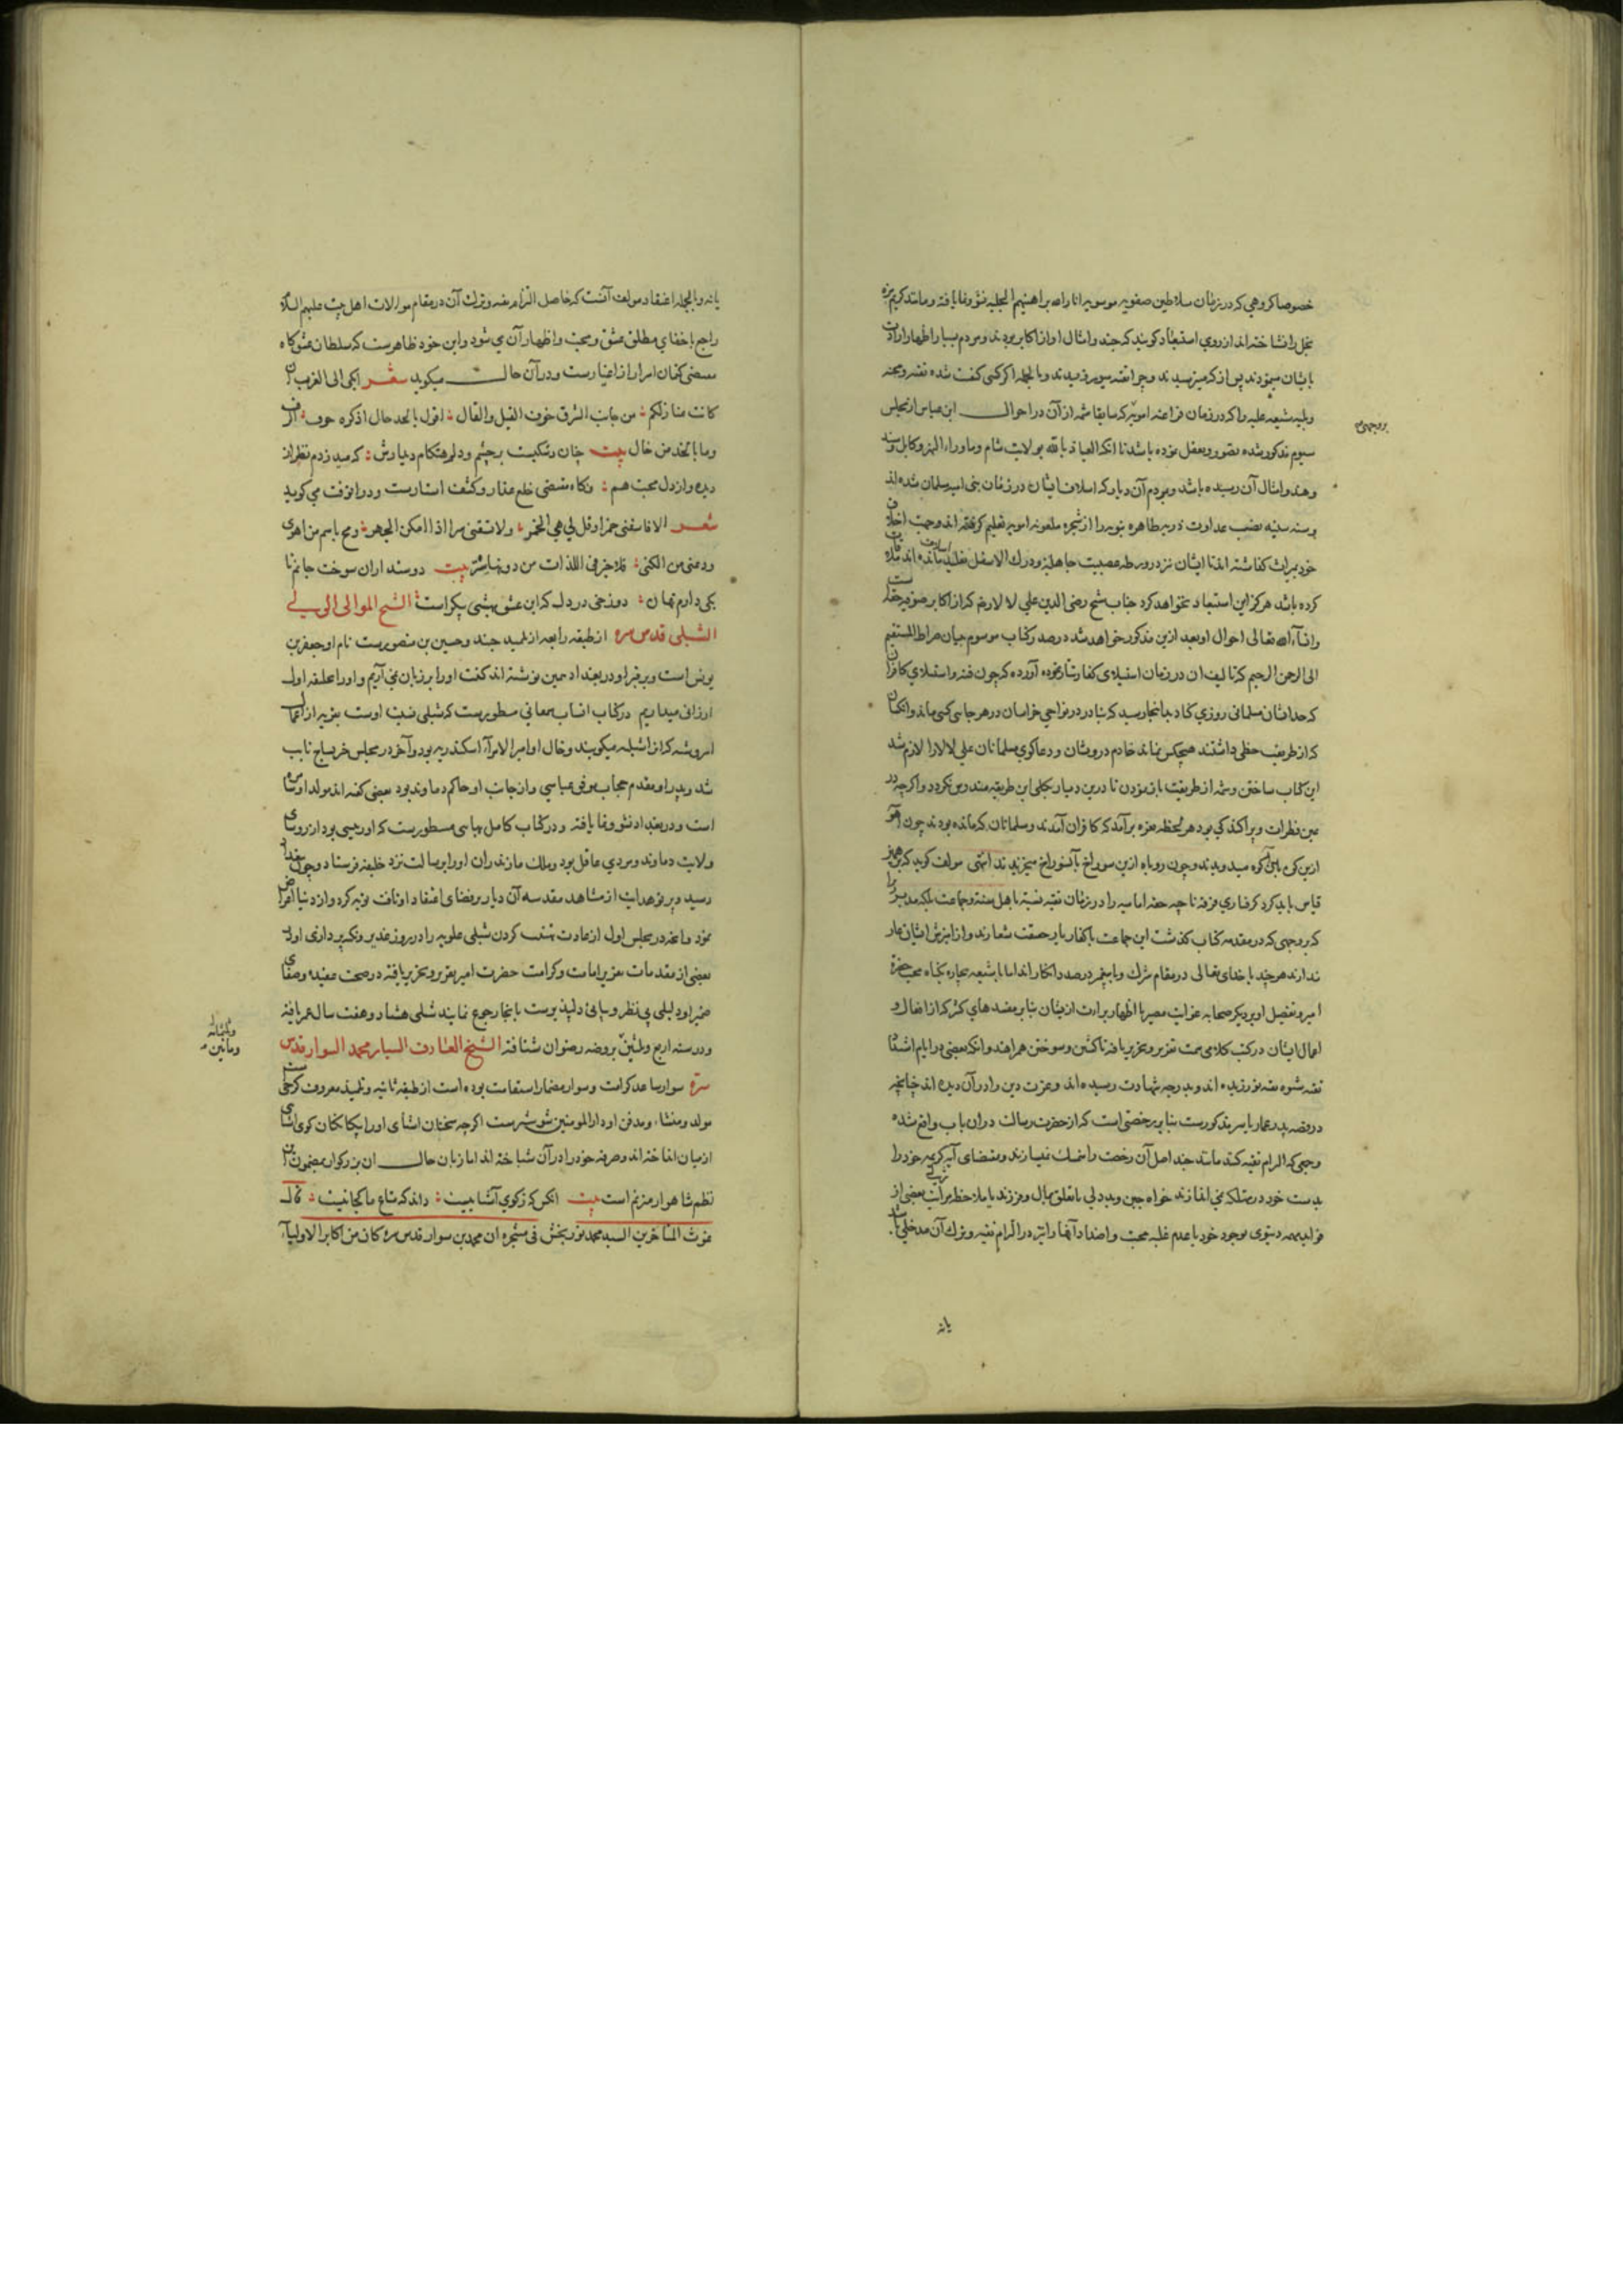 خصوصا کروهی که در زمان سلاطین صفویه موسویه انار الله براهینهم الجلیه نشو و نما یافته و مانند کریم بزه
بخل را نشناخته اند از روی استبعاد کویند که جنید و امثال او از اکابر بودند و مردم بسیار اظهار ارادت
بایشان مینمودند پس از که میترسیدند و چرا تقیه میورزیدند و بالجمله اکر کسی کفت شده تقیه و محنه
وبلیه شیعه علیه را که در زمان فراعنه امویه که سابقا شمه از آن در احوال ابن عباس از مجلس
بروجهی
سیوم مذکور شده تصور و تعقل نموده باشد تا آنکه العیاذ بالله بولایت شام و ماوراء النهر و کابل و سند
وهند و امثال آن رسیده باشد و مردم آن دیار که اسلاف ایشان در زمان بنی امیه مسلمان شده اند
وسنه سیئه نصب عداوت ذریه طاهره نبویه را از شجره ملعونه امویه تعلیم کرفته اند و جهت اخلاف
خود بمیراث کذاشته اند تا ایشان نیز در ورطه عصبیت جاهلیة و درک الاسفل تقلید اسلاف مانده اند ملاقات
کرده باشد هرکز این استبعاد نخواهد کرد جناب شیخ رضی الدین علی لالا رحم که از اکابر صوفیه حقه است
وانشاء الله تعالی احوال او بعد ازین مذکور خواهد شد در صدر کتاب موسوم بمیان صراط المستقیم
الی الرحمن الرحیم که تالیف ان در زمان استیلای کفار تتار نموده آورده که چون فتنه و استیلای کافران
که حد ایشان مسلمانی روزی کناد بدانجا رسید که بنادر در نواحی خراسان در هر جایی کسی ماند و انکسان
که از طریقت حظی داشتند هیچکس نماند خادم درویشان و دعاکوی مسلمانان علی لالا را لازم شد
این کتاب ساختن و شمه از طریقت باز نمودن تا درین دیار بکلی این طریقه مندرس نکردد و اکرچه در
عین فطرات و پراکندکی بود هر لحظه نعره برآمد که کافران آمدند و مسلمانان که مانده بودند چون آهو
ازین کوه بآن کوه میدویدند و چون روباه ازین سوراخ بآنسوراخ میخزیدند انتهی مولف کوید که برین همین
قیاس باید کرد کرفتاری فرقه ناجیه حقه امامیه را در زمان تقیه نسبة باهل سنة وجماعت بلکه بدتر زیرا
که بروجهی که در مقدمه کتاب کذشت این جماعت با کفار بابر حقیقت شعارند و از آمیزش ایشان عار
ندارند هرچند با خدای تعالی در مقام شرک و با پیغمبر در صدد انکار اند اما با شیعه بیچاره بکناه محبت حضرة
امیر و تفضیل او بر دیکر صحابه عزایت مصیر یا اظهار برائت ازیشان بنا بر مفسدهای کثیر که از افعال و
اعمال ایشان در کتب کلامی سمت تقریر و تحریر یافته تا کشتن و سوختن همراهند و انکه بعضی در ایام اشتداد
تقیه شیوه تقیه نورزیده اند و بدرجه شهادت رسیده اند و عزت دین را در آن دیده اند چنانچه
در قصه پدر عمار یاسر مذکورست بنا بر رخصتی است که از حضرت رسالت در ان باب واقع شده
وجمعی که التزام تقیه کنند مانند جنید اصل آن رخصت را تمسک نمیسازند و بمقتضای آیه کریمه خود را
بدست خود در مهلکه نمی اندازند خواه جبن و بددلی یا تعلق بمال و فرزند یا ملاحظه مراتب بعضی از
فواید مهمه دنیوی بوجود خود یا عدم غلبه محبت و اضداد آنها را نیز در التزام تقیه و ترک آن مدخلی باشد
یانه
یانه و بالجمله اعتقاد مولف آنست که حاصل التزام تقیه و ترک آن در مقام موالات اهل بیت علیهم السلام
راجع باخفای مطلق عشق و محبت و اظهار آن می شود و این خود ظاهرست که سلطان عشق کاه
مقتضی کتمان اسرار از اغیارست و در آن حالت میکوید شعر ابکی الی الغرب ان
کانت منازلکم من جانب الشرق خوف القیل والقال اقول بالخد خال حین اذکره خوف الرقیب
وما بالخد من خال بیت چنان رشکیست بر چشم و دلم هنکام دیدارش که میدزدم نظر از
دیده و از دل محبت هم و کاه مقتضی خلع عذار و کشف استارست و در انوقت می کوید
شعر الا فاسقنی خمرا وقل لی هی الخمر ولا تسقنی سرا اذا امکن الجهر وبح باسم من اهوی
ودعنی من الکنی فلا خیر فی اللذات من دونها ستر بیت دوستداران سوخت جانم تا
بکی دارم نهان دوزخی در دل که این عشق بهشتی پیکر است الشیخ الموالی الی ... لی
الشبلی قدس سره از طبقه رابعه از تلمیذ جنید و حسین بن منصورست نام او جعفر بن
یونس است و بر قبر او در بغداد همین نوشته اند کفت او را بر زبان نمی آریم و او را علفه اول
ارزانی میداریم در کتاب انساب سمعانی مسطورست که شبلی نسبت اوست بقریه از اعمال
اسروشنه که از اشبلیه میکویند و خال او امیر الامراء اسکندریه بود و آخر در مجلس خیر نساج تایب
شد و پدر او مقدم حجاب موفق عباسی و از جانب او حاکم دماوند بود بعضی کفته اند مولد او سامره
است و در بغداد نشو و نما یافته و در کتاب کامل بهایی مسطورست که او رییسی بود از روسای
ولایت دماوند و مردی عاقل بود و ملک مازندران او را برسالت نزد خلیفه فرستاد و چون ببغداد
رسید و بر نور هدایت از مشاهد مقدسه آن دیار بر فضای اعتقاد او تافت توبه کرد و از دنیا اعراض
نمود و آنچه در مجلس اول از عادت تهنیت کردن شبلی علویه را در روز غدیر و نکته پردازی او در
بعضی از مقدمات تعزیر امامت و کرامت حضرت امیر تقریر و تحریر یافته در صحت عقیده و صفای
ضمیر او دلیلی بی نظیر و بیانی دلپذیرست بآنجا رجوع نمایند شبلی هشتاد و هفت سال عمر یافته
ودر سنه اربع وثلثین بروضه رضوان شتافته الشیخ العارف السیار محمد السوار قدس
وثلثمائه
ومابین
سره سوار ساعد کرامت و سوار مضمار استقامت بوده است از طبقه ثانیه و تلمیذ معروف کرخی است
مولد و منشاء و مدفن او دار المومنین شوشترست اکرچه سخنان آشنای او را بیکانکان کوی آشنایی
از میان انداخته اند و صرفه خود را در آن شناخته اند اما زبان حال ان بزرکوار بمضمون این
نظم شاهوار مترنم است بیت انکس که زکوی آشنائیست داند که متاع ما کجائیست قال
غوث المتاخرین السید محمد نوربخش فی مشجره ان محمد بن سوار قدس سره کان من اکابر الاولیاء